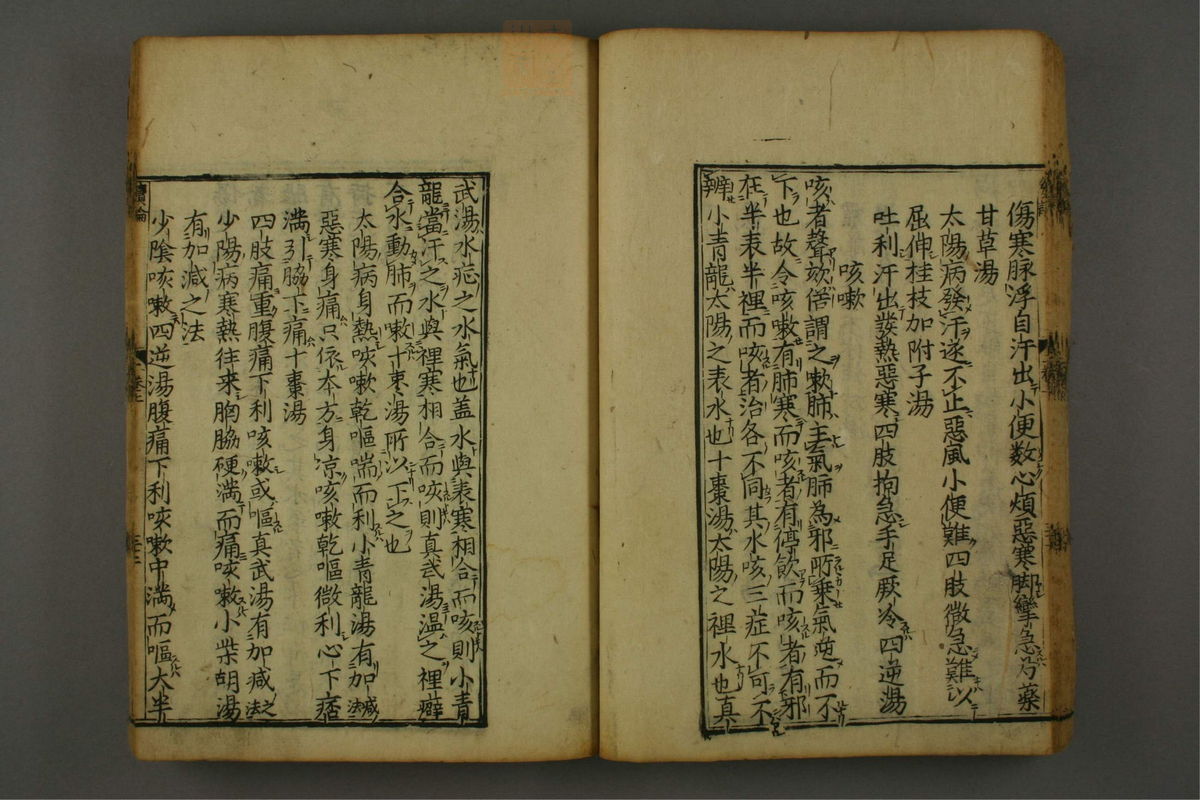 傷寒脉浮自汗出小便数心煩惡寒脚攣急芍藥
甘草湯
太陽病發汗遂不止惡風小便難四肢微急難以
屈伸桂枝加附子湯
吐利汗出發熱惡寒四肢拘急手足厥冷四逆湯
咳嗽
咳者聲欬俗謂之嗽肺主氣肺為邪所乗氣逆而不
下也故令咳嗽有肺寒而咳者有停飲而咳者有邪
在半表半裡而咳者治各不同其水咳三症不可不
辨小青龍太陽之表水也十棗湯太陽之裡水也真
武湯水症之水氣也盖水與表寒相合而咳則小青
龍當汗之水與裡寒相合而咳則真武湯温之裡癖
合水動肺而嗽十枣湯所以下之也
太陽病身熱咳嗽乾嘔喘而利小青龍湯有加减法
惡寒身痛只依本方身凉咳嗽乾嘔微利心下痞
満引脇下痛十棗湯
四肢痛重腹痛下利咳嗽或嘔真武湯有加减之法
少陽病寒熱往来胸脇硬満而痛咳嗽小柴胡湯
有加减之法
少陰咳嗽四逆湯腹痛下利咳嗽中満而嘔大半